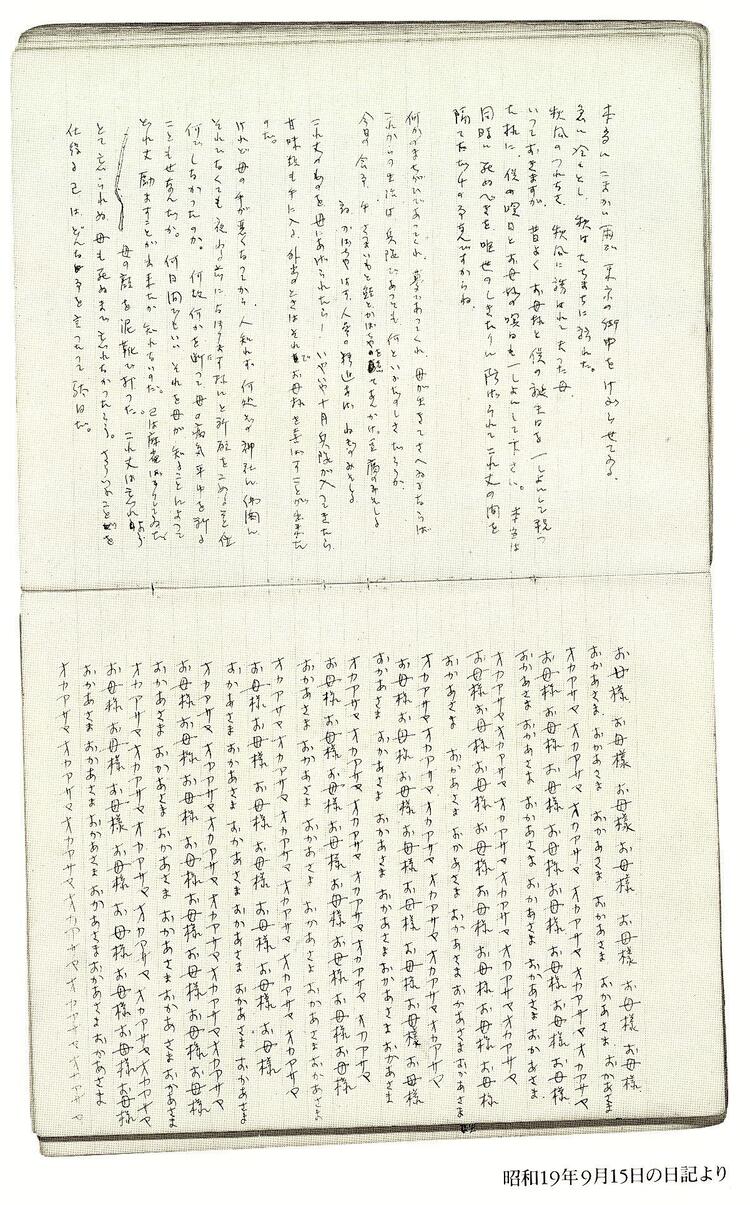 本当にこまかい雨が東京の街中をけむらせてゐる。
急に冷え〻とし、秋はたちまちに訪れた。
秋風のつれなさ、秋風に誘はれし去つた母。
いつておきますが、昔よくお母様と僕の誕生日を一しよにして祝つ
た様に、僕の命日とお母様の命日も一しよにして下さい。本当は
同時に死ぬべきを、唯世のしきたりに隔てられてこれ丈の間を
隔てた丈の事ですからね。
何かのまちがひであつてくれ、夢であつてくれ、母が生きてさへゐるならば
これからの生活は兵隊であつても何といふたのしさだらうか。
今日の会食、牛、さつまいもと
これ丈のものを母にあげられたら! いやいや十月兵隊が入つてきたら
甘味技も手に入る、外出のときはそれでお母様を喜ばすことが出来た
のだ。
けれど母の手が悪くなつてから、人知れず何処かの神社に
それでなくても夜ねる前には必ずちやんと祈願をこめることを位
何でしなかつたのか。何故何かを断つて母の病気平癒を祈る
こともせなんだか。何日間でもいい、それを母が知ることによつて
どれ丈励ますことが出来たか知れないのだ。己は麻雀ばかりしてゐた。
母の顔を泥靴で打つた、これ丈は忘れ
とて忘られぬ。母も死ぬまで忘れなかつたらう。さういふことを
仕後る己は、どんな事を言つたつて駄目だ。
お母様 お母様 お母様 お母様 お母様 お母様 お母様
おかあさま おかあさま おかあさま おかあさま おかあさま おかあさま
オカアサマ オカアサマ オカアサマ オカアサマ オカアサマ オカアサマ
お母様 お母様 お母様 お母様 お母様 お母様 お母様 お母様
おかあさま おかあさま おかあさま おかあさま おかあさま おかあさま
オカアサマ オカアサマ オカアサマ オカアサマ オカアサマ オカアサマ
お母様 お母様 お母様 お母様 お母様 お母様 お母様 お母様
おかあさま おかあさま おかあさま おかあさま おかあさま おかあさま
オカアサマ オカアサマ オカアサマ オカアサマ オカアサマ オカアサマ
お母様 お母様 お母様 お母様 お母様 お母様 お母様 お母様
おかあさま おかあさま おかあさま おかあさま おかあさま おかあさま
オカアサマ オカアサマ オカアサマ オカアサマ オカアサマ オカアサマ
お母様 お母様 お母様 お母様 お母様 お母様 お母様
おかあさま おかあさま おかあさま おかあさま おかあさま おかあさま
オカアサマ オカアサマ オカアサマ オカアサマ オカアサマ オカアサマ
お母様 お母様 お母様 お母様 お母様 お母様 お母様
おかあさま おかあさま おかあさま おかあさま おかあさま おかあさま
オカアサマ オカアサマ オカアサマ オカアサマ オカアサマ オカアサマ
お母様 お母様 お母様 お母様 お母様 お母様 お母様 お母様
おかあさま おかあさま おかあさま おかあさま おかあさま おかあさま
オカアサマ オカアサマ オカアサマ オカアサマ オカアサマ オカアサマ
お母様 お母様 お母様 お母様 お母様 お母様 お母様 お母様
おかあさま おかあさま おかあさま おかあさま おかあさま おかあさま
オカアサマ オカアサマ オカアサマ オカアサマ オカアサマ オカアサマ
昭和19年9月15日の日記より